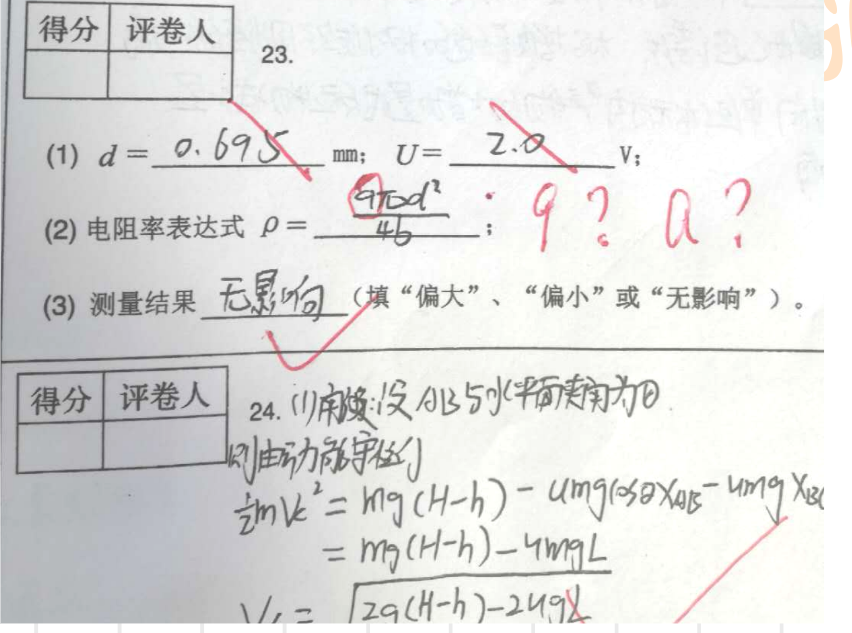 得分 评卷人
23.
(1) d = 0.695 mm; U = 2.0 V;
(2) 电阻率表达式 ρ = 9πd²/4b ; 9? a?
(3) 测量结果 无影响 (填“偏大”、“偏小”或“无影响”)。
得分 评卷人
24. (1)由题:设AB与水平面夹角为θ
则由动能定理
½mVc² = mg(H-h) - umgcosθXAB - umgXBC
= mg(H-h) - umgL
Vc = √2g(H-h)-2ugL